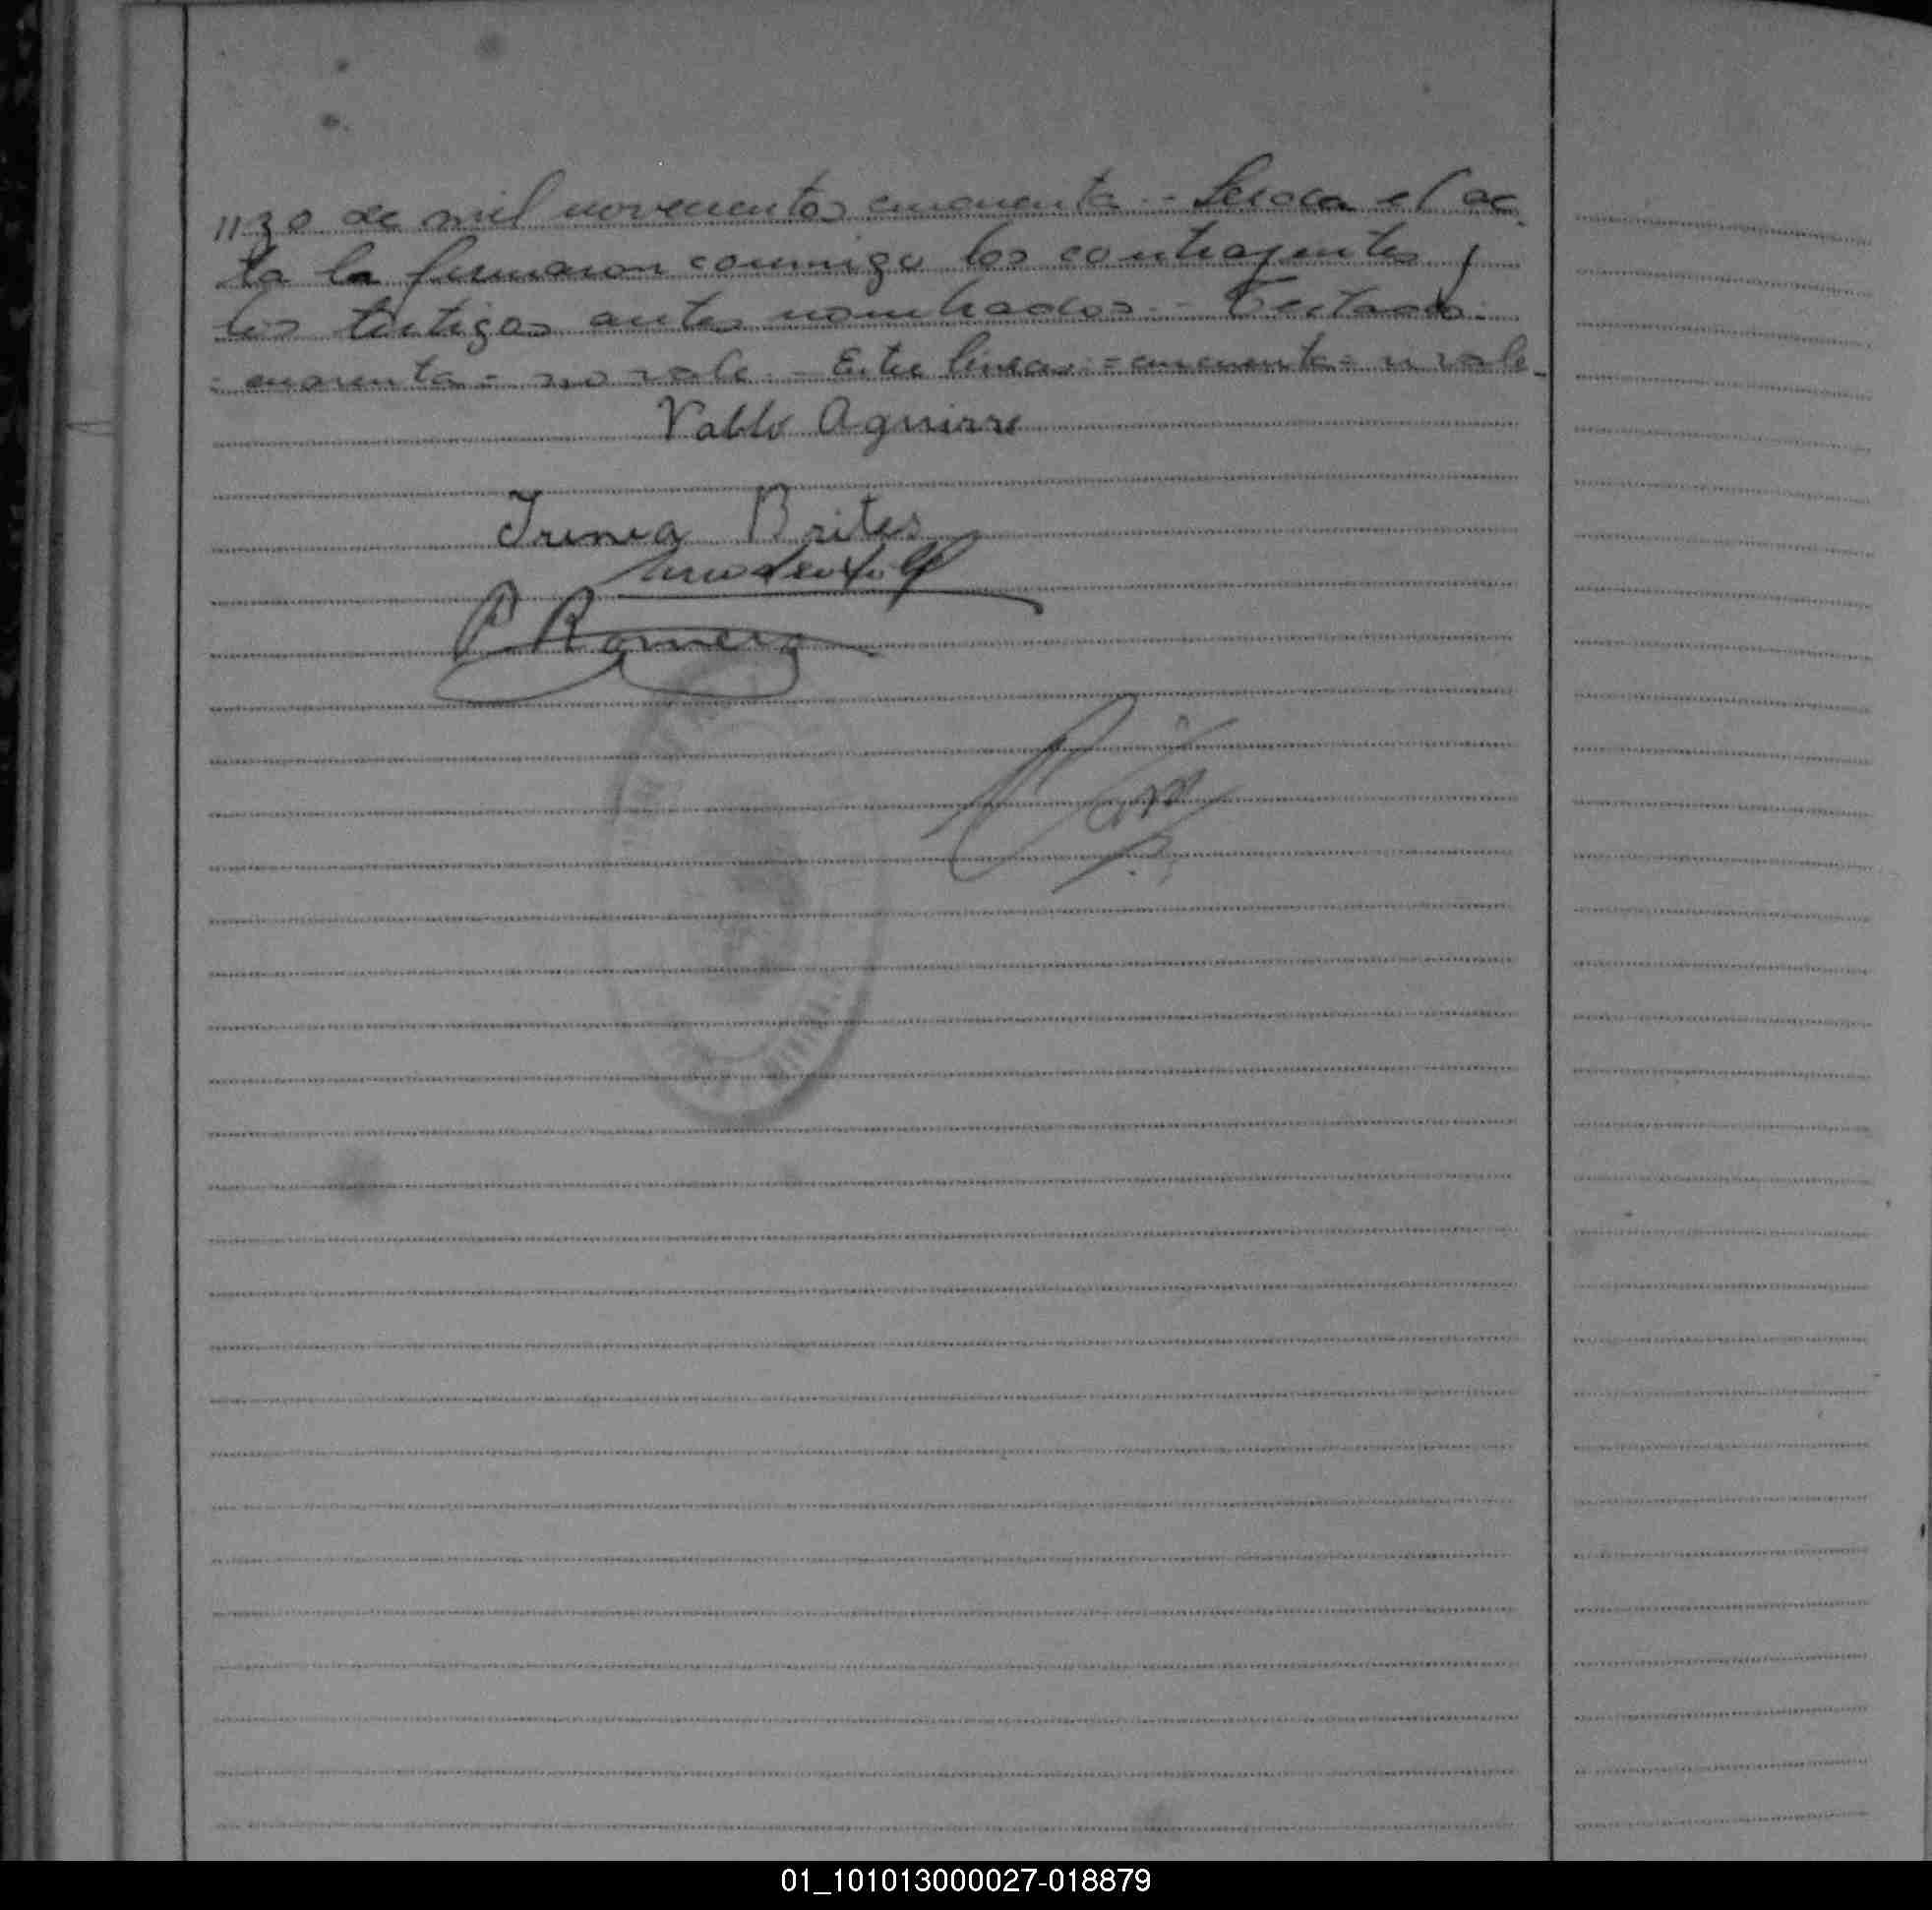 rzo de mil novecientos cincuenta.- Leida el ac
ta la firmaron conmigo los contrayentes y
los testigos antes nombrados.- Testado:
= cuarenta = no vale.- Entre lineas: = cincuenta = vale.
Pablo Aguirre
Irenea Brites
P Romero
01_101013000027-018879